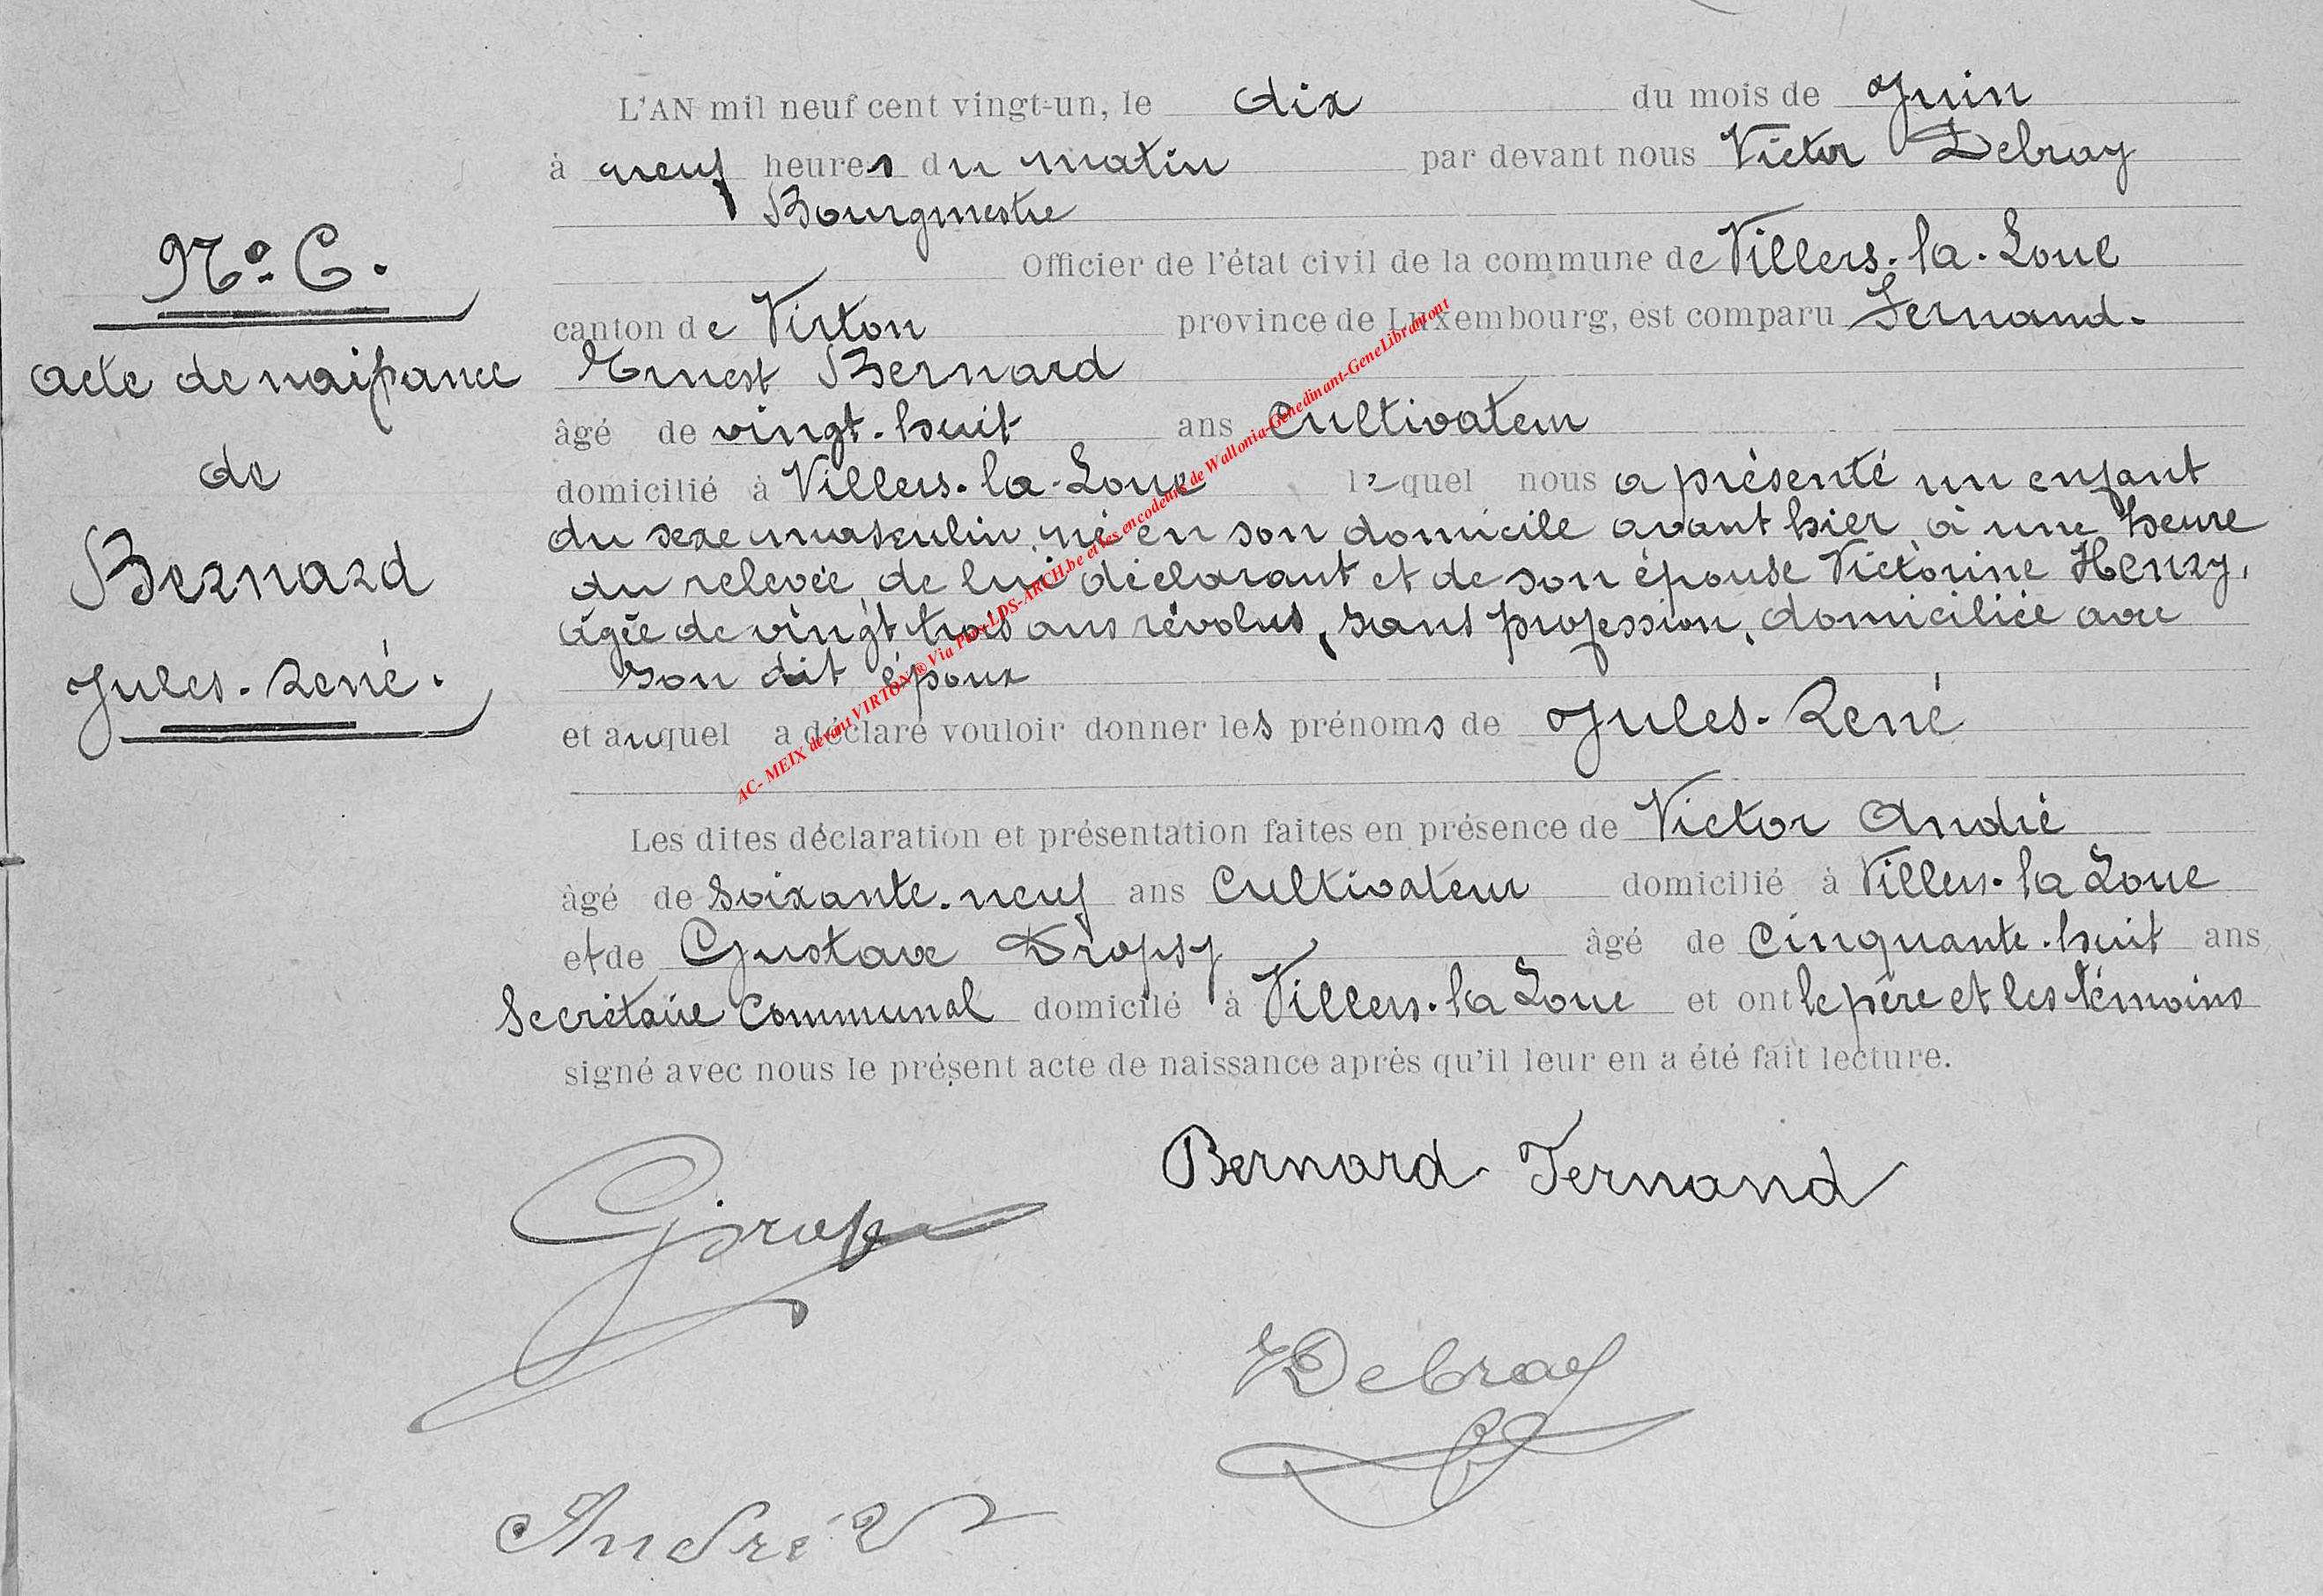 L'AN mil neuf cent vingt-un, le dix du mois de Juin
à neuf heures du matin par devant nous Victor Debray
Bourgmestre
Officier de l'état civil de la commune de Villers-la-Loue
canton de Virton province de Luxembourg, est comparu Fernand-
Ernest Bernard
âgé de vingt-huit ans Cultivateur
domicilié à Villers-la-Loue lequel nous a présenté un enfant
du sexe masculin, né en son domicile avant hier, à une heure
du relevée, de lui déclarant et de son épouse Victorine Henry,
âgée de vingt trois ans révolus, sans profession, domiciliée avec
son dit époux
et auquel a déclaré vouloir donner les prénoms de Jules-René
Les dites déclaration et présentation faites en présence de Victor André
âgé de soixante-neuf ans Cultivateur domicilié à Villers-la Loue
et de Gustave Dropsy âgé de Cinquante-huit ans
Secrétaire Communal domicilé à Villers-la Loue et ont le père et les témoins
signé avec nous le présent acte de naissance après qu'il leur en a été fait lecture.
No
acte de naissance
de
Bernard
Jules-René.
AC- MEIX devant VIRTON ® Via Pays LDS-ARCH.be et les encodeurs de Wallonia-Genedinant-GeneLibramont
Bernard Fernand
Debray
André V